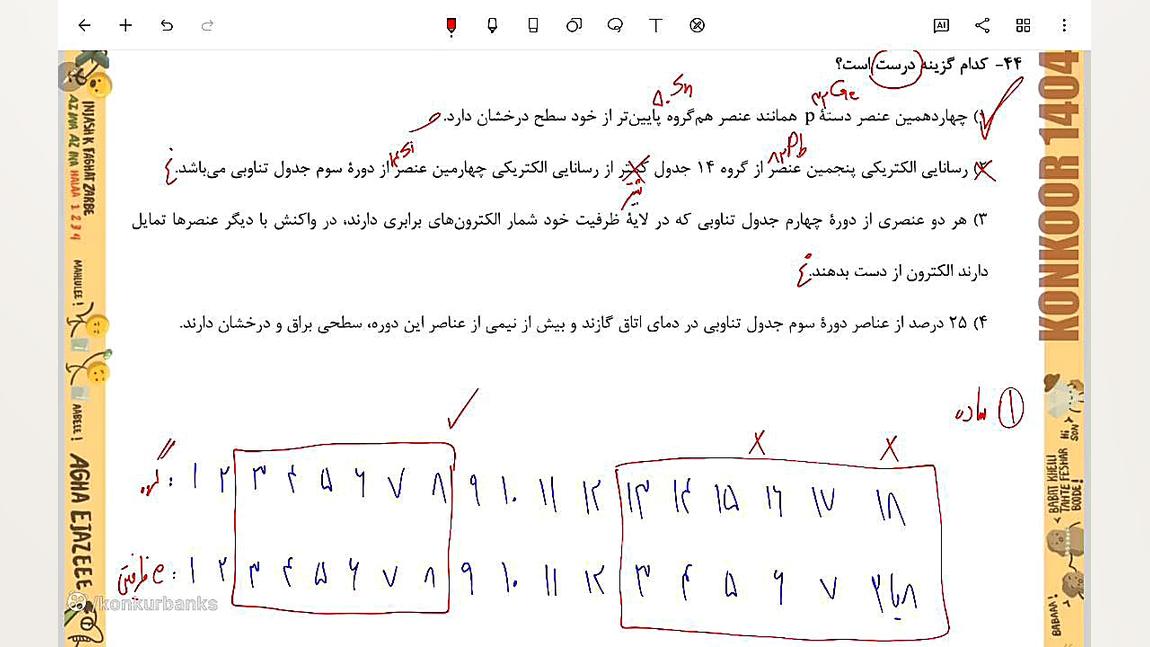 ۴۴- کدام گزینه درست است؟
۵۰Sn ۳۲Ge
۱) چهاردهمین عنصر دستهٔ p همانند عنصر هم‌گروه پایین‌تر از خود سطح درخشان دارد.
۱۴Si ۸۲Pb
۲) رسانایی الکتریکی پنجمین عنصر از گروه ۱۴ جدول کمتر از رسانایی الکتریکی چهارمین عنصر از دورهٔ سوم جدول تناوبی می‌باشد.
۳) هر دو عنصری از دورهٔ چهارم جدول تناوبی که در لایهٔ ظرفیت خود شمار الکترون‌های برابری دارند، در واکنش با دیگر عنصرها تمایل
دارند الکترون از دست بدهند.
۴) ۲۵ درصد از عناصر دورهٔ سوم جدول تناوبی در دمای اتاق گازند و بیش از نیمی از عناصر این دوره، سطحی براق و درخشان دارند.
۱ ساده
گروه: ۱ ۲ ۳ ۴ ۵ ۶ ۷ ۸ ۹ ۱۰ ۱۱ ۱۲ ۱۳ ۱۴ ۱۵ ۱۶ ۱۷ ۱۸
e ظرفیتی: ۱ ۲ ۳ ۴ ۵ ۶ ۷ ۸ ۹ ۱۰ ۱۱ ۱۲ ۳ ۴ ۵ ۶ ۷ ۸ یا ۲
/konkurbanks
KONKOOR 1404
INJASH K FAGHAT ZARBE
AZ MA AZ NA HALAA 1 2 3 4
MAHLULEE !
AABELE !
AGHA EJAZEEE
BABAT KHEILI
TAHTE FESHAR
BOODE !
Hi
SON
BABAAA !
AI
T